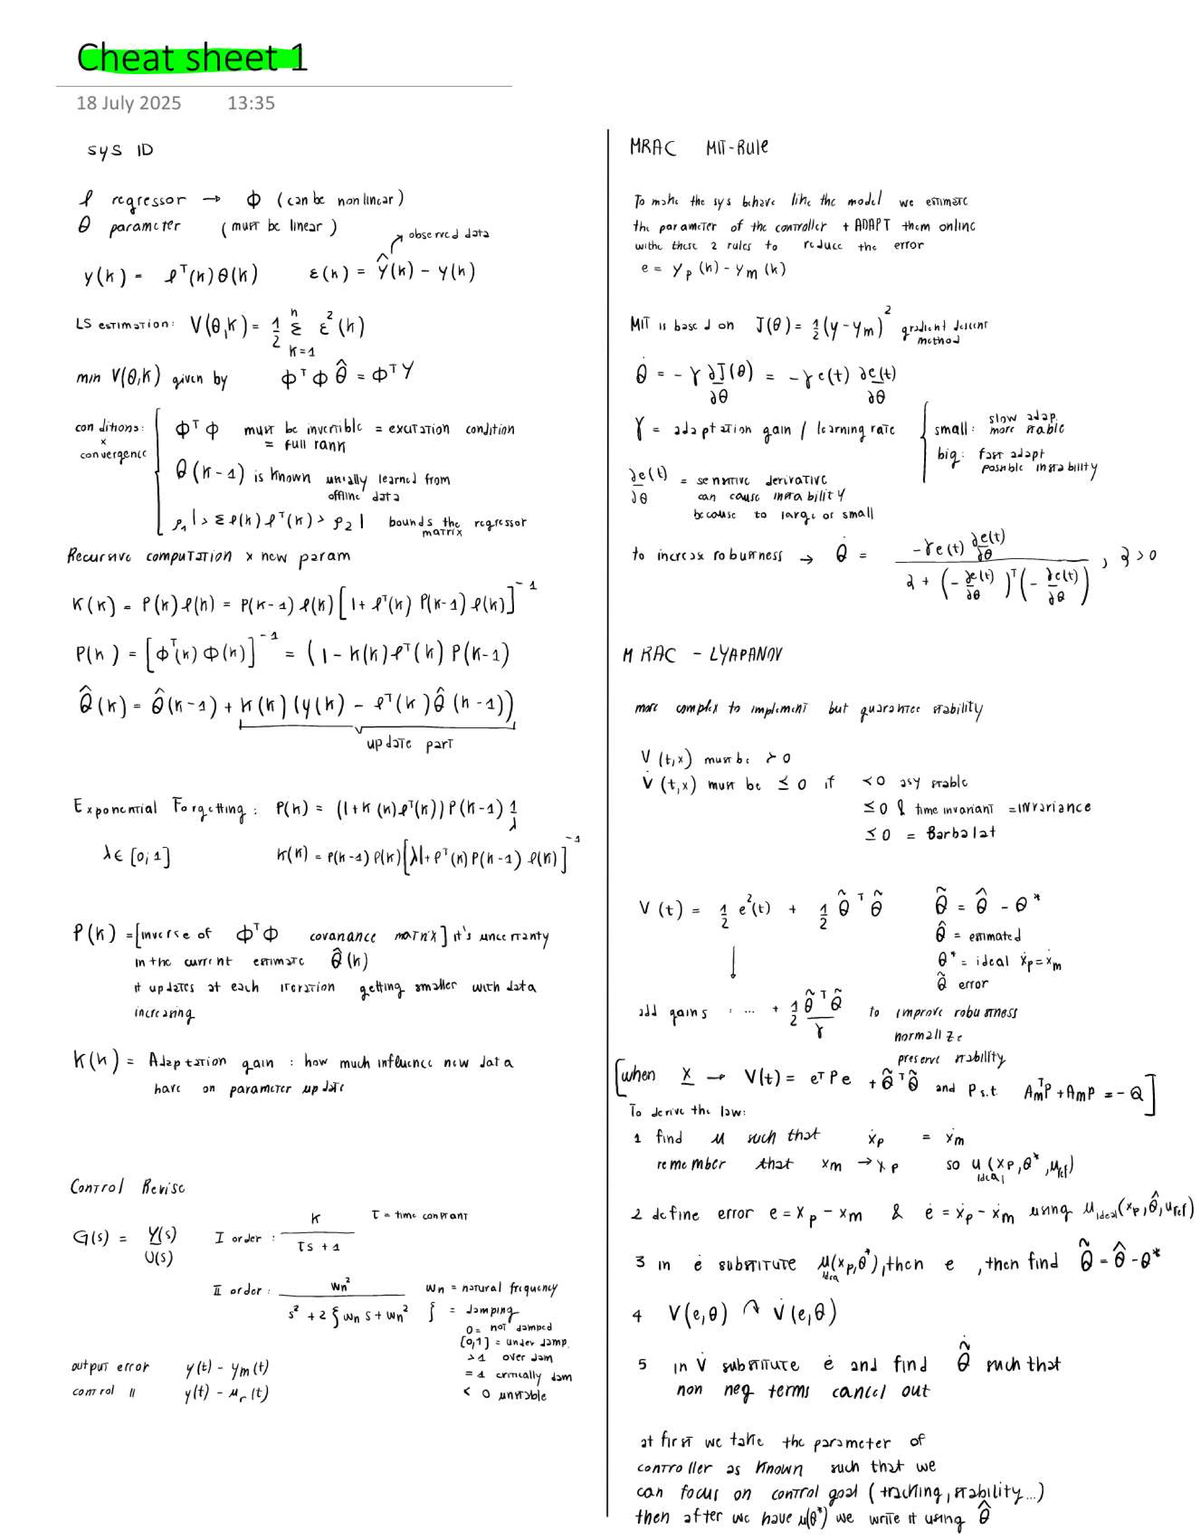 Cheat sheet 1
18 July 2025 13:35
sys ID
φ regressor → Φ (can be non linear)
θ parameter (must be linear)
observed data
y(k) = φᵀ(k)θ(k) ε(k) = ŷ(k) - y(k)
LS estimation: V(θ,k) = 1/2 Σ_{k=1}^{n} ε²(k)
min V(θ,k) given by ΦᵀΦ θ̂ = Φᵀ Y
conditions x convergence
ΦᵀΦ must be invertible = excitation condition
= full rank
θ(k-1) is known usually learned from
offline data
ρ₁ I > Σ φ(k) φᵀ(k) > ρ₂ I bounds the regressor
matrix
Recursive computation x new param
K(k) = P(k)φ(k) = P(k-1) φ(k) [1 + φᵀ(k) P(k-1) φ(k)]⁻¹
P(k) = [Φᵀ(k) Φ(k)]⁻¹ = (I - K(k)φᵀ(k) P(k-1)
θ̂(k) = θ̂(k-1) + K(k) (y(k) - φᵀ(k)θ̂(k-1))
update part
Exponential Forgetting: P(k) = (I+K(k)φᵀ(k)) P(k-1) 1/λ
λ ∈ [0,1] K(k) = P(k-1) φ(k) [λI + φᵀ(k) P(k-1) φ(k)]⁻¹
P(k) = [inverse of ΦᵀΦ covariance matrix] it's uncertanty
in the current estimate θ̂(k)
it updates at each iteration getting smaller with data
increasing
K(k) = Adaptation gain : how much influence new data
have on parameter update
Control Revise
G(s) = Y(s)/U(s) I order : K/(τs + 1) τ = time constant
II order : wn²/(s² + 2ξ wn s + wn²) wn = natural frequency
ξ = damping
0 = not damped
[0,1] = under damp.
>1 over dam
= 1 critically dam
< 0 unstable
output error y(t) - ym(t)
control " y(t) - ur(t)
MRAC MIT-Rule
To make the sys behave like the model we estimate
the parameter of the controller + ADAPT them online
withe these 2 rules to reduce the error
e = yp(k) - ym(k)
MIT is based on J(θ) = 1/2 (y - ym)² gradient descent
method
θ̇ = -γ ∂J(θ)/∂θ = -γ e(t) ∂e(t)/∂θ
γ = adaptation gain / learning rate
small: slow adap.
more stable
big: fast adapt
possible instability
∂e(t)/∂θ = sensitive derivative
can cause instability
because to large or small
to increase robustness → θ̇ = -γe(t) ∂e(t)/∂θ / (λ + (-∂e(t)/∂θ)ᵀ(-∂e(t)/∂θ)) , λ > 0
MRAC - LYAPANOV
more complex to implement but guarantee stability
V(t,x) must be > 0
V̇(t,x) must be ≤ 0 if <0 asy stable
≤ 0 & time invariant = invariance
≤ 0 = Barbalat
V(t) = 1/2 e²(t) + 1/2 θ̃ᵀ θ̃ θ̃ = θ̂ - θ*
θ̂ = estimated
θ* = ideal ẋp = ẋm
θ̃ error
add gains : ... + 1/2 θ̃ᵀθ̃/γ to improve robustness
normalize
preserve stability
[when x → V(t) = eᵀPe + θ̃ᵀθ̃ and P s.t AmᵀP + AmP = -Q]
To derive the law:
1 find u such that ẋp = ẋm
remember that xm → xp so u ideal (xp, θ*, uref)
2 define error e = xp - xm & ė = ẋp - ẋm using uideal(xp, θ̂, uref)
3 in ė substitute u idea(xp, θ*), then e , then find θ̃ = θ̂ - θ*
4 V(e,θ) ↷ V̇(e,θ)
5 in V̇ substitute ė and find θ̃̇ such that
non neg terms cancel out
at first we take the parameter of
controller as known such that we
can focus on control goal (tracking, stability...)
then after we have u(θ*) we write it using θ̂